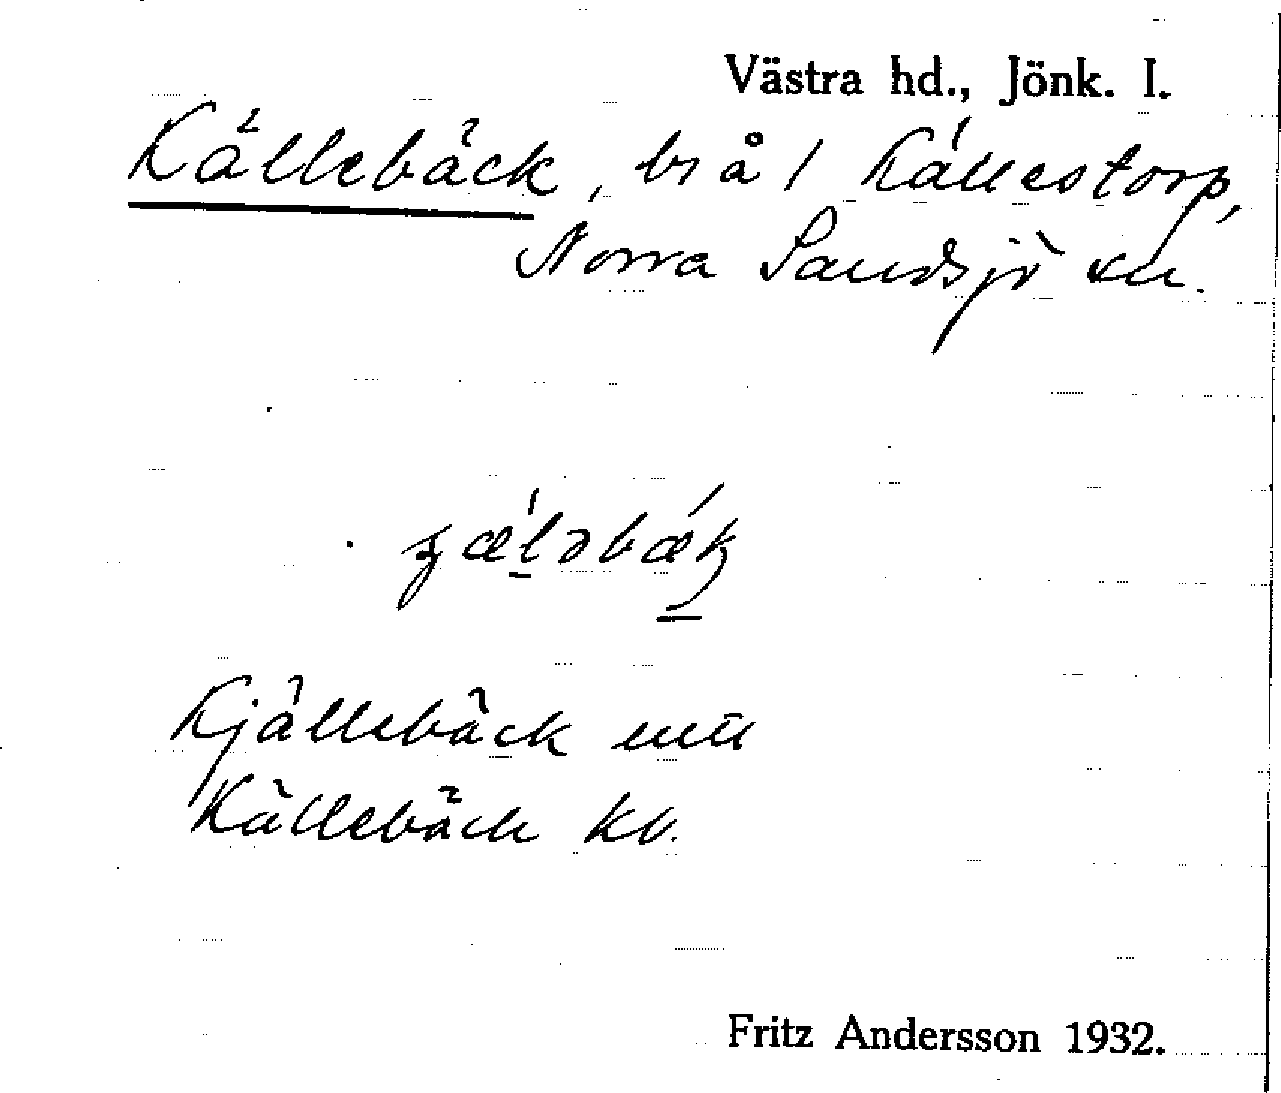 Västra hd., Jönk. l.
Källebäck, br å 1 Källestorp,
Norra Sandsjö sn.
Kjällebäck
Källebäck kb.
Fritz Andersson 1932.